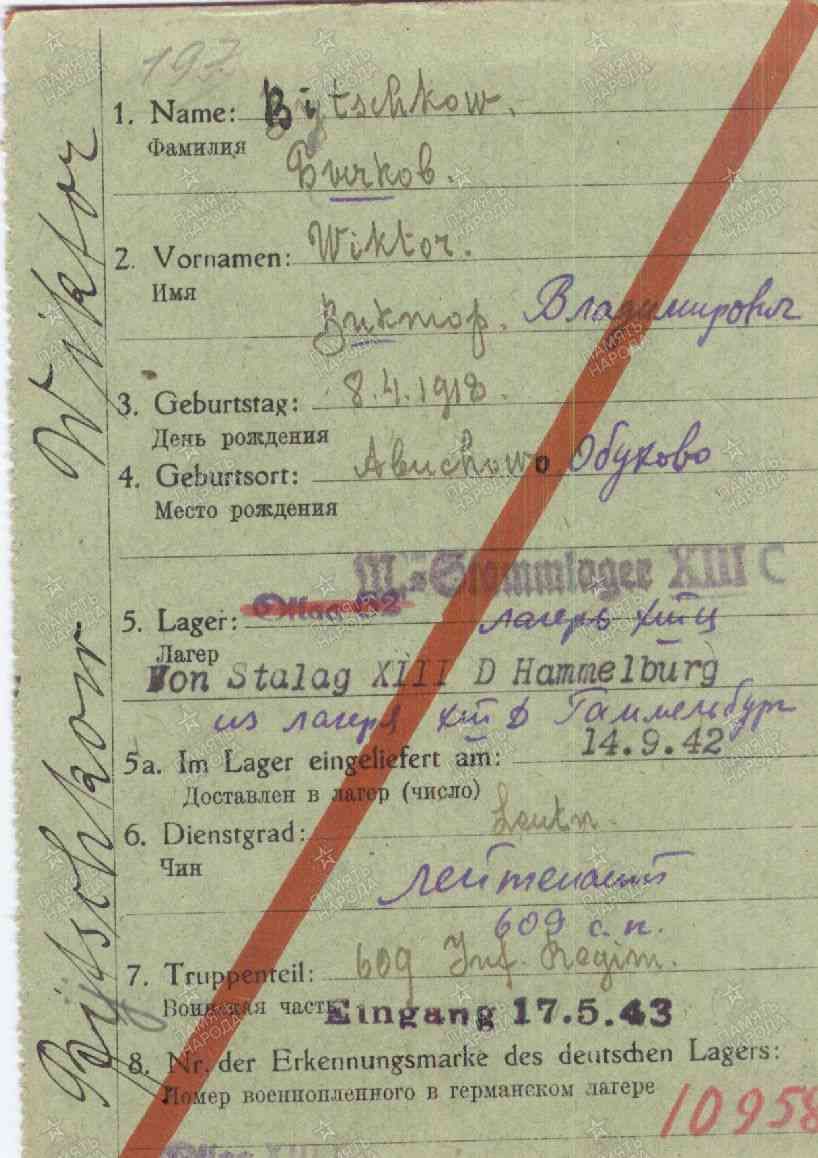 193
1. Name: Bytschkow.
Фамилия
Бычков.
2. Vornamen: Wiktor.
Имя
Виктор. Владимирович
3. Geburtstag: 8.4.1918.
День рождения
4. Geburtsort: Abuchowo Обухово
Место рождения
M.=Stammlager XIII C
5. Lager: Oflag 62 лагерь XIII Ц
Лагер
Von Stalag XIII D Hammelburg
из лагеря XIII D Гаммельбург
5a. Im Lager eingeliefert am: 14.9.42
Доставлен в лагер (число)
6. Dienstgrad: Leutn.
Чин
лейтенант
609 с. п.
7. Truppenteil: 609 Inf. Regim.
Воинская часть
Eingang 17.5.43
8. Nr. der Erkennungsmarke des deutschen Lagers:
Номер военнопленного в германском лагере
10958
Oflag XIII
Bytschkow Wiktor
ПАМЯТЬ НАРОДА